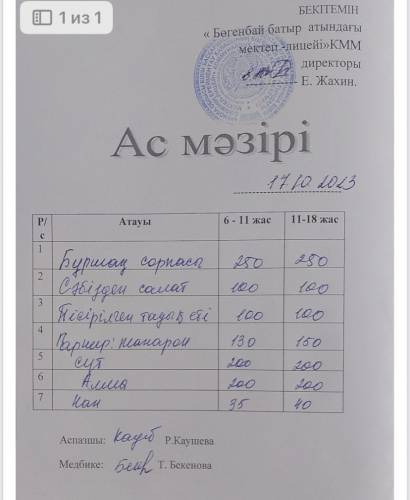 1 из 1
БЕКІТЕМІН
« Бөгенбай батыр атындағы
мектеп -лицейі»КММ
директоры
Е. Жахин.
Ас мәзірі
17.10.2023
Р/с Атауы 6 - 11 жас 11-18 жас
1 Бұршақ сорпасы 250 250
2 Сәбізден салат 100 100
3 Пісірілген тауық еті 100 100
4 Гарнир: макарон 130 150
5 Сүт 200 200
6 Алма 200 200
7 Нан 35 40
Аспазшы: Р.Каушева
Медбике: Т. Бекенова